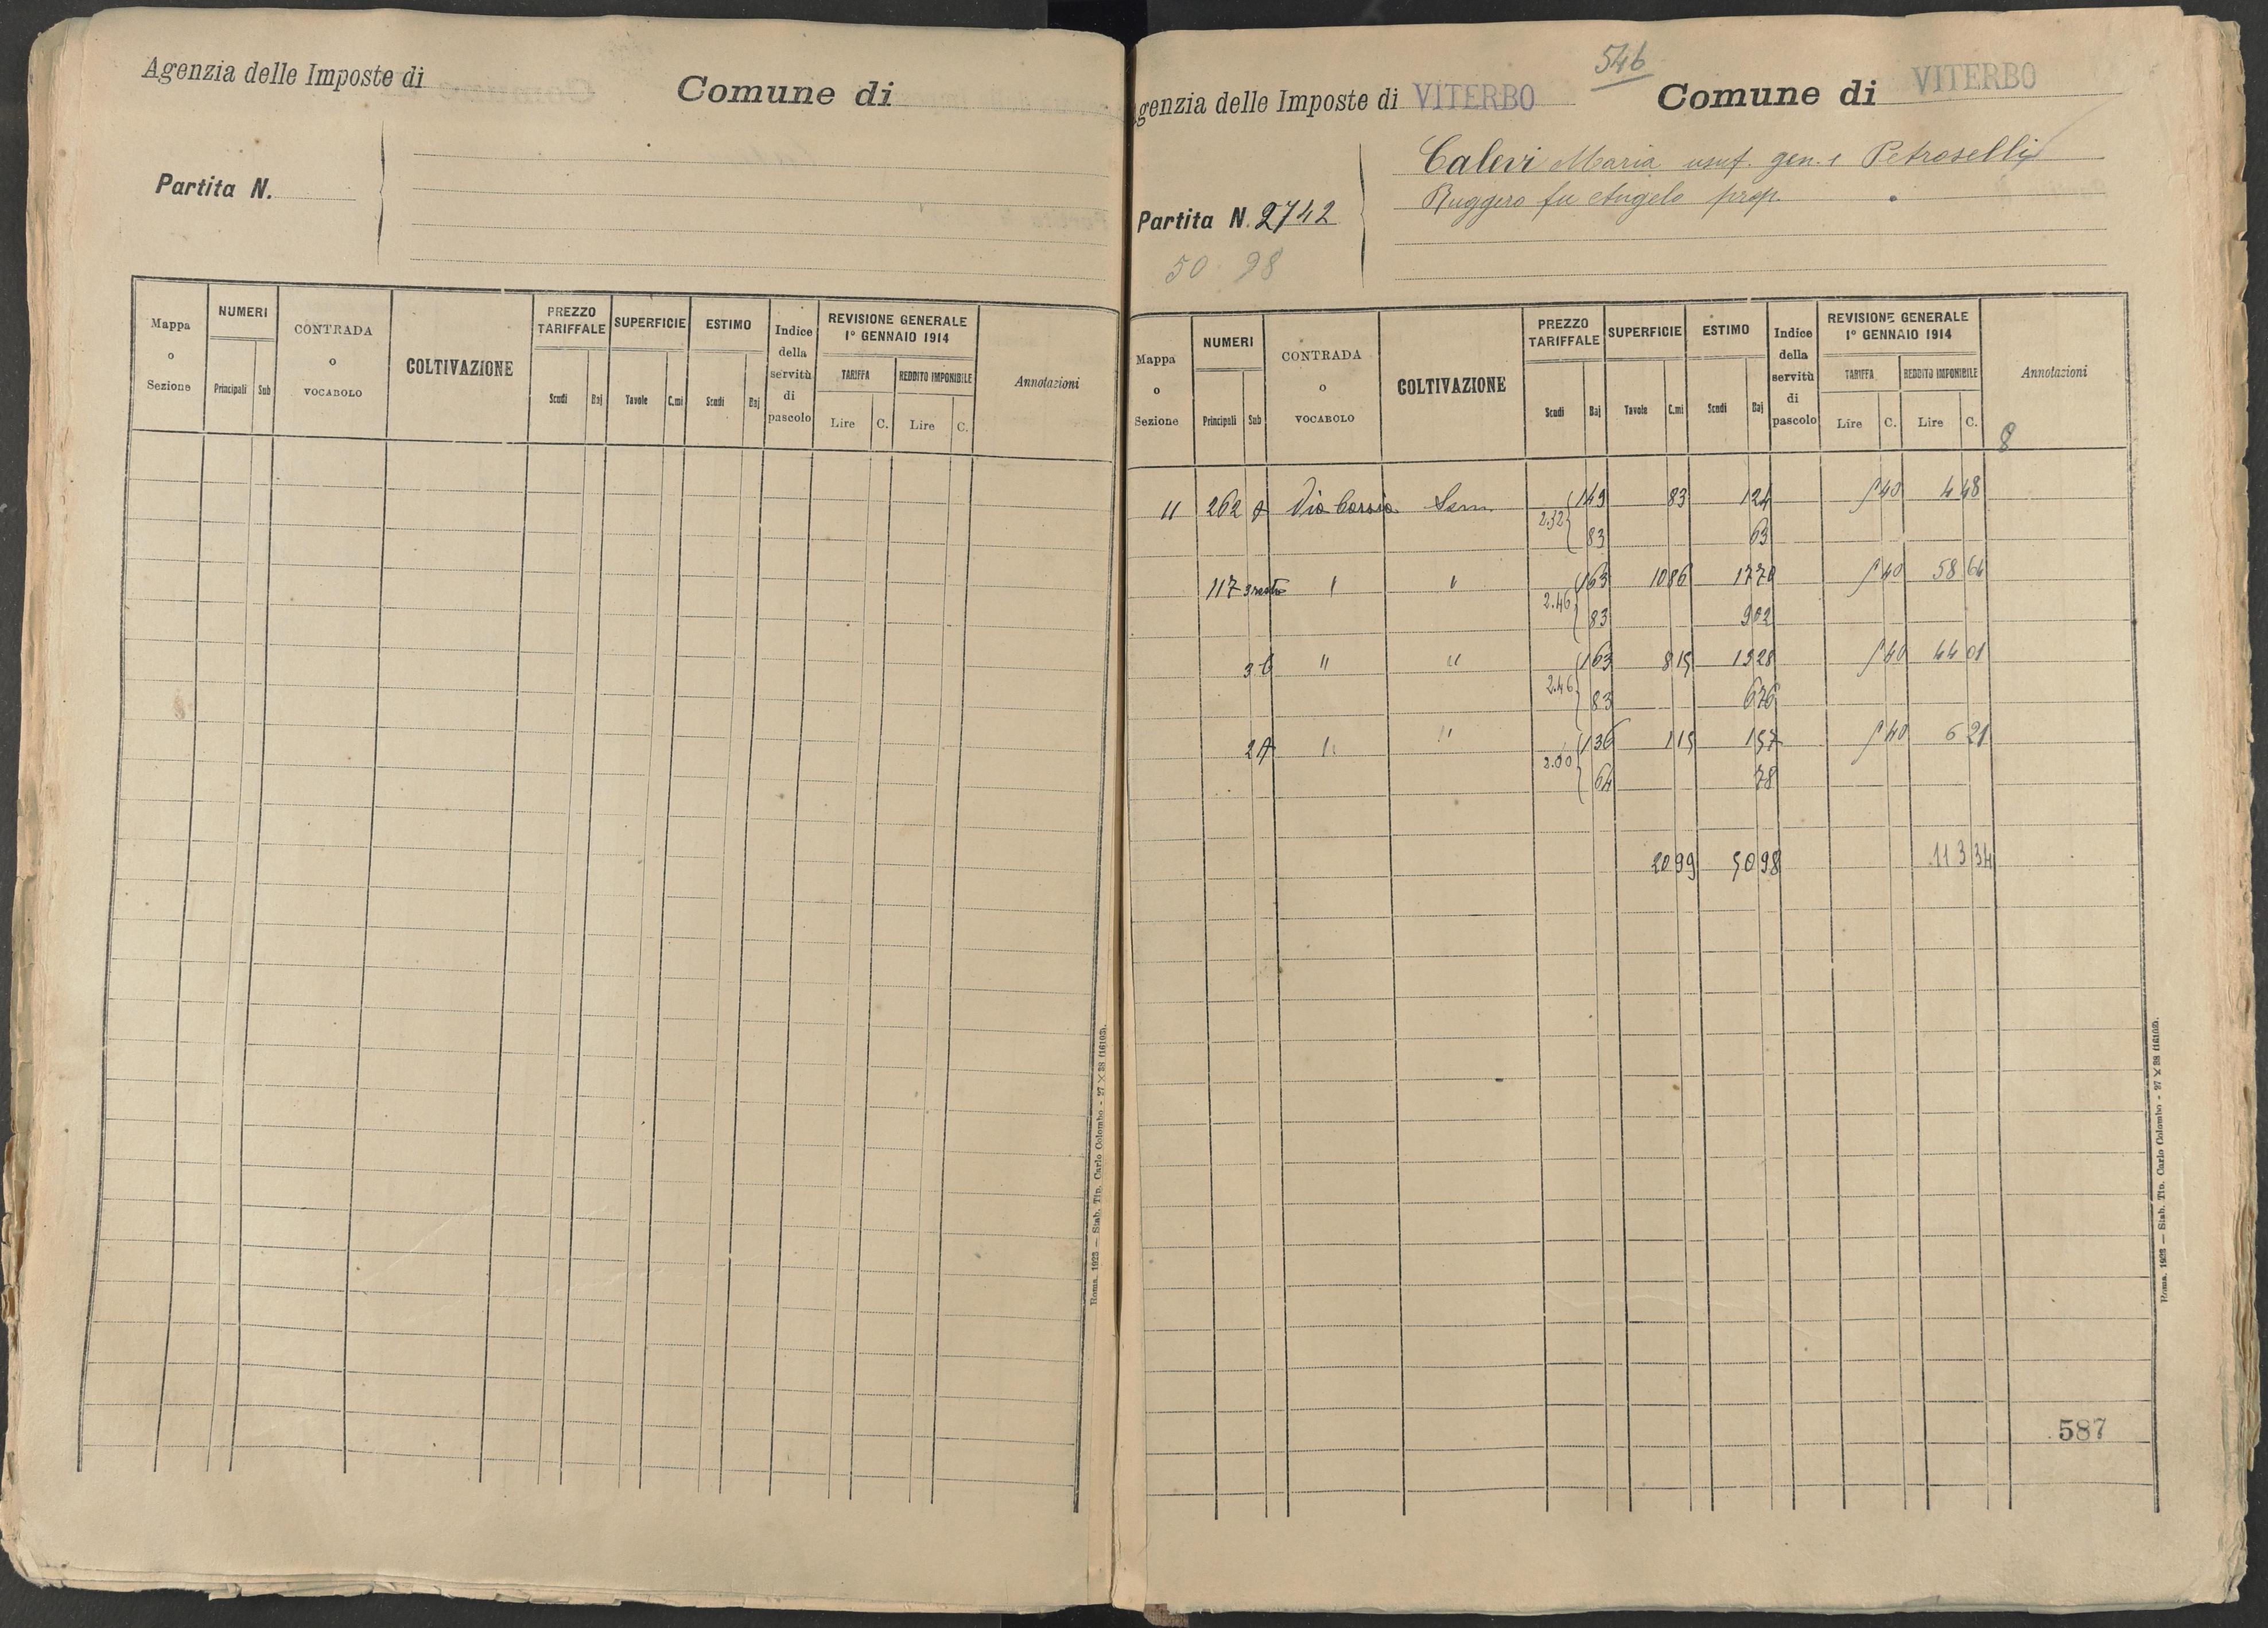 Agenzia delle Imposte di
Comune di
Partita N.
Mappa o Sezione
NUMERI
Principali Sub
CONTRADA o VOCABOLO
COLTIVAZIONE
PREZZO TARIFFALE
Scudi Baj
SUPERFICIE
Tavole C.mi
ESTIMO
Scudi Baj
Indice della servitù di pascolo
REVISIONE GENERALE 1° GENNAIO 1914
TARIFFA
Lire C.
REDDITO IMPONIBILE
Lire C.
Annotazioni
Roma. 1923 — Stab. Tip. Carlo Colombo - 27 × 38 (16103).
546
genzia delle Imposte di VITERBO
Comune di VITERBO
Calevi Maria usuf. gen. e Petroselli
Ruggero fu Angelo prop.
Partita N. 2742
50 98
Mappa o Sezione
NUMERI
Principali Sub
CONTRADA o VOCABOLO
COLTIVAZIONE
PREZZO TARIFFALE
Scudi Baj
SUPERFICIE
Tavole C.mi
ESTIMO
Scudi Baj
Indice della servitù di pascolo
REVISIONE GENERALE 1° GENNAIO 1914
TARIFFA
Lire C.
REDDITO IMPONIBILE
Lire C.
Annotazioni
8
11 262 Via Cassia Sem. 1 49 83 1 24 5 40 4 48
2.32 83 63
117 3 resto " " 1 63 10 86 17 70 5 40 58 64
2.46 83 9 02
3 b " " 1 63 8 15 13 28 5 40 44 01
2.46 83 6 76
2 " " 1 36 1 15 1 57 5 40 6 21
2.00 64 78
20 99 50 98 113 34
Roma. 1923 — Stab. Tip. Carlo Colombo - 27 × 38 (16103).
587